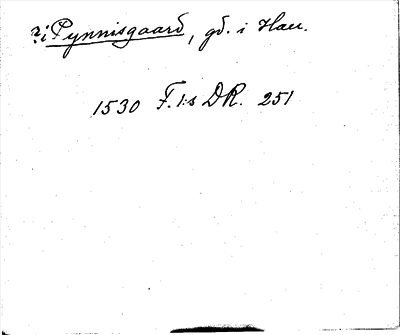 ?i Pynnisgaard, gd. i Han.
1530 F. I:s DR. 251